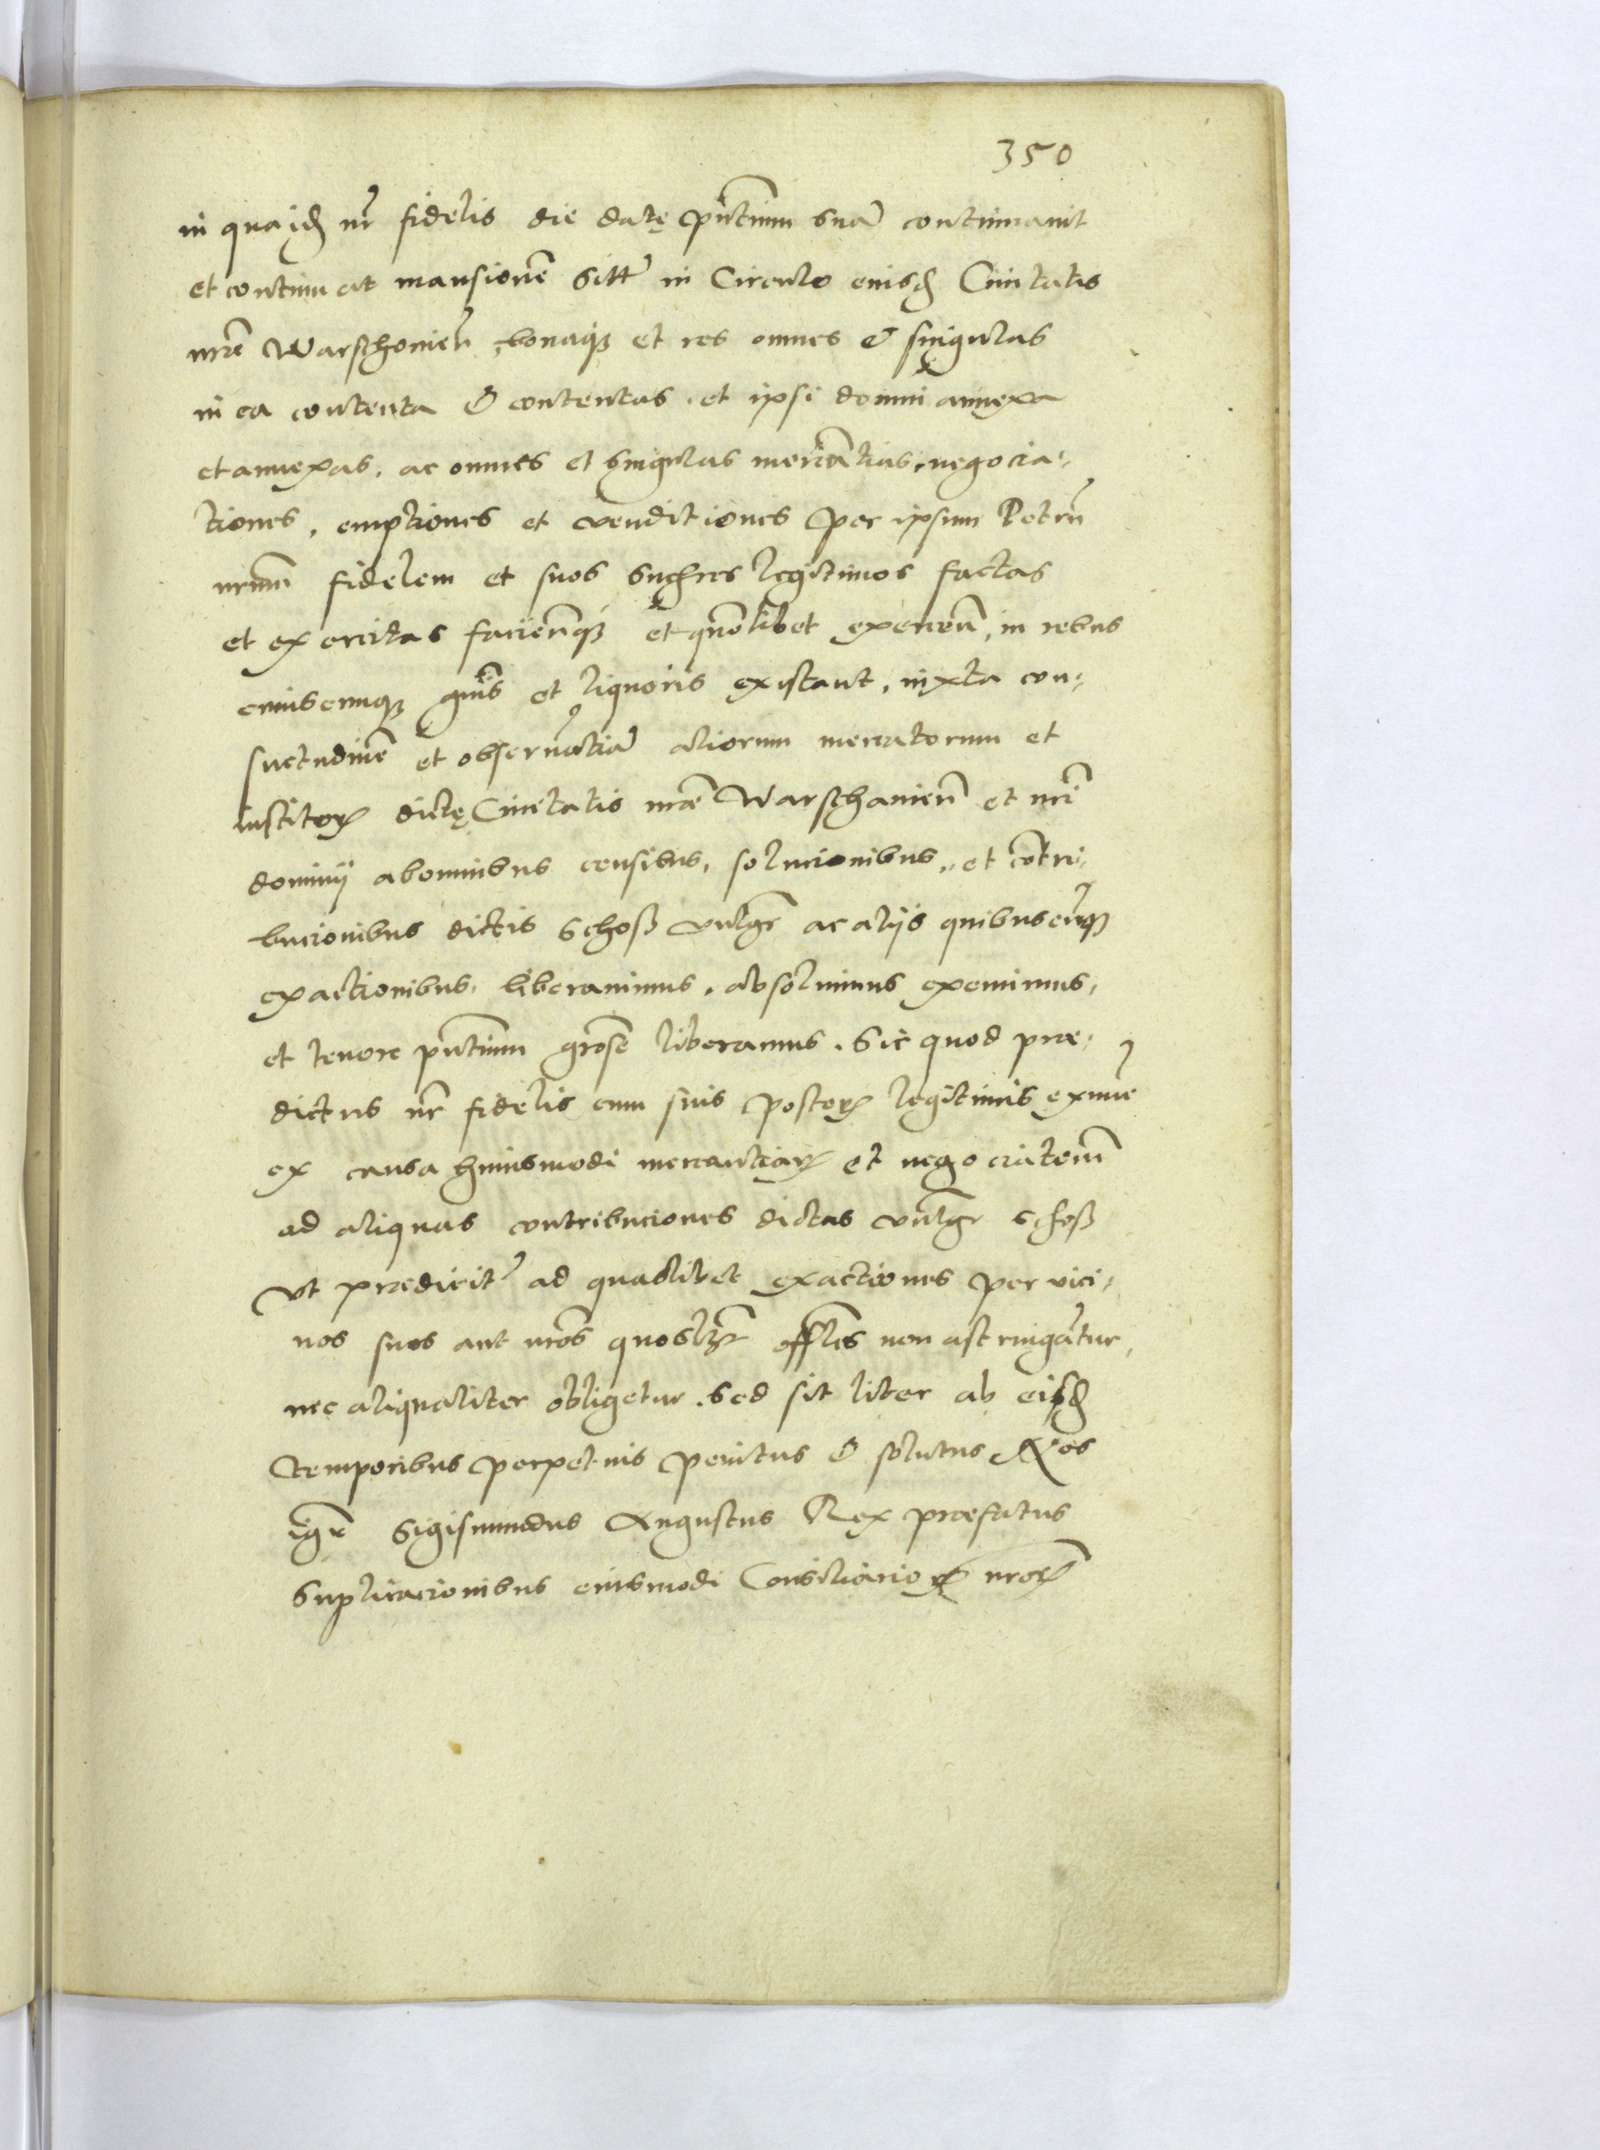 350
in qua id nr fidelis die datę pntium suã continuavit
et continuat mansionẽ sitt in Circulo eiusd Civitatis
nre Warschovien, bonaq et res omnes & singulas
in ea contenta & contentas. et ipsi domui annexa
et annexas. ac omnes et singulas mercãtias, negocia-
tiones, emptiones et venditiones per ipsum Petrũ
nrum fidelem et suos succres legitimos factas
et exercitas faciẽnq et quõlibet exercen, in rebus
cuiuscunq gnis et liquoris existant, iuxta con-
suetudinẽ et observãtiã aliorum mercatorum et
institor dictę Civitatis nrae Warschavien et nri
dominij ab omnibus censibus, solucionibus, et cõtri-
bucionibus dictis Schoß vulgr ac alijs quibuscunq
exactionibus, liberavimus, absolvimus exemimus,
et tenore pntium grose liberamus. Sic quod prae-
dictus nr fidelis cum suis poster legitimis exnunc
ex causa huiusmodi mercantiar et negociationũ
ad aliquas contribuciones dictas vulgr schoß
Ut praedicit ad quaslibet exactiones per vici-
nos suos aut nros quoslz offles non astringãtur,
nec aliqualiter obligetur. Sed sit liber ab eisd
temporibus perpetuis penitus & solutus Nos
igr Sigismundus Augustus Rex praefatus
Suplicacionibus eiusmodi Consiliarior nror